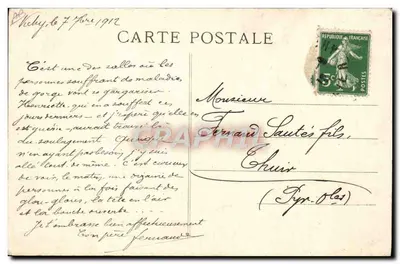 Vichy, le 7 7bre 1912
CARTE POSTALE
REPUBLIQUE FRANÇAISE
5c
POSTES
C'est une des salles où les
personnes souffrant de maladies
de gorge vont se gargariser.
Henriette, qui en a souffert ces
jours derniers et j'espère qu'elle en
est guérie, pourrait trouver là
du soulagement. Quoique
n'en ayant pas besoin, j'y suis
allé tout de même. C'est curieux
de voir, le matin, une dizaine de
personnes à la fois faisant des
glou-glous, la tête en l'air
et la bouche ouverte...
Je t'embrasse bien affectueusement
Ton père Fernand
Monsieur
Fernand Sautés fils,
Thuir
(Pyr. Ole)